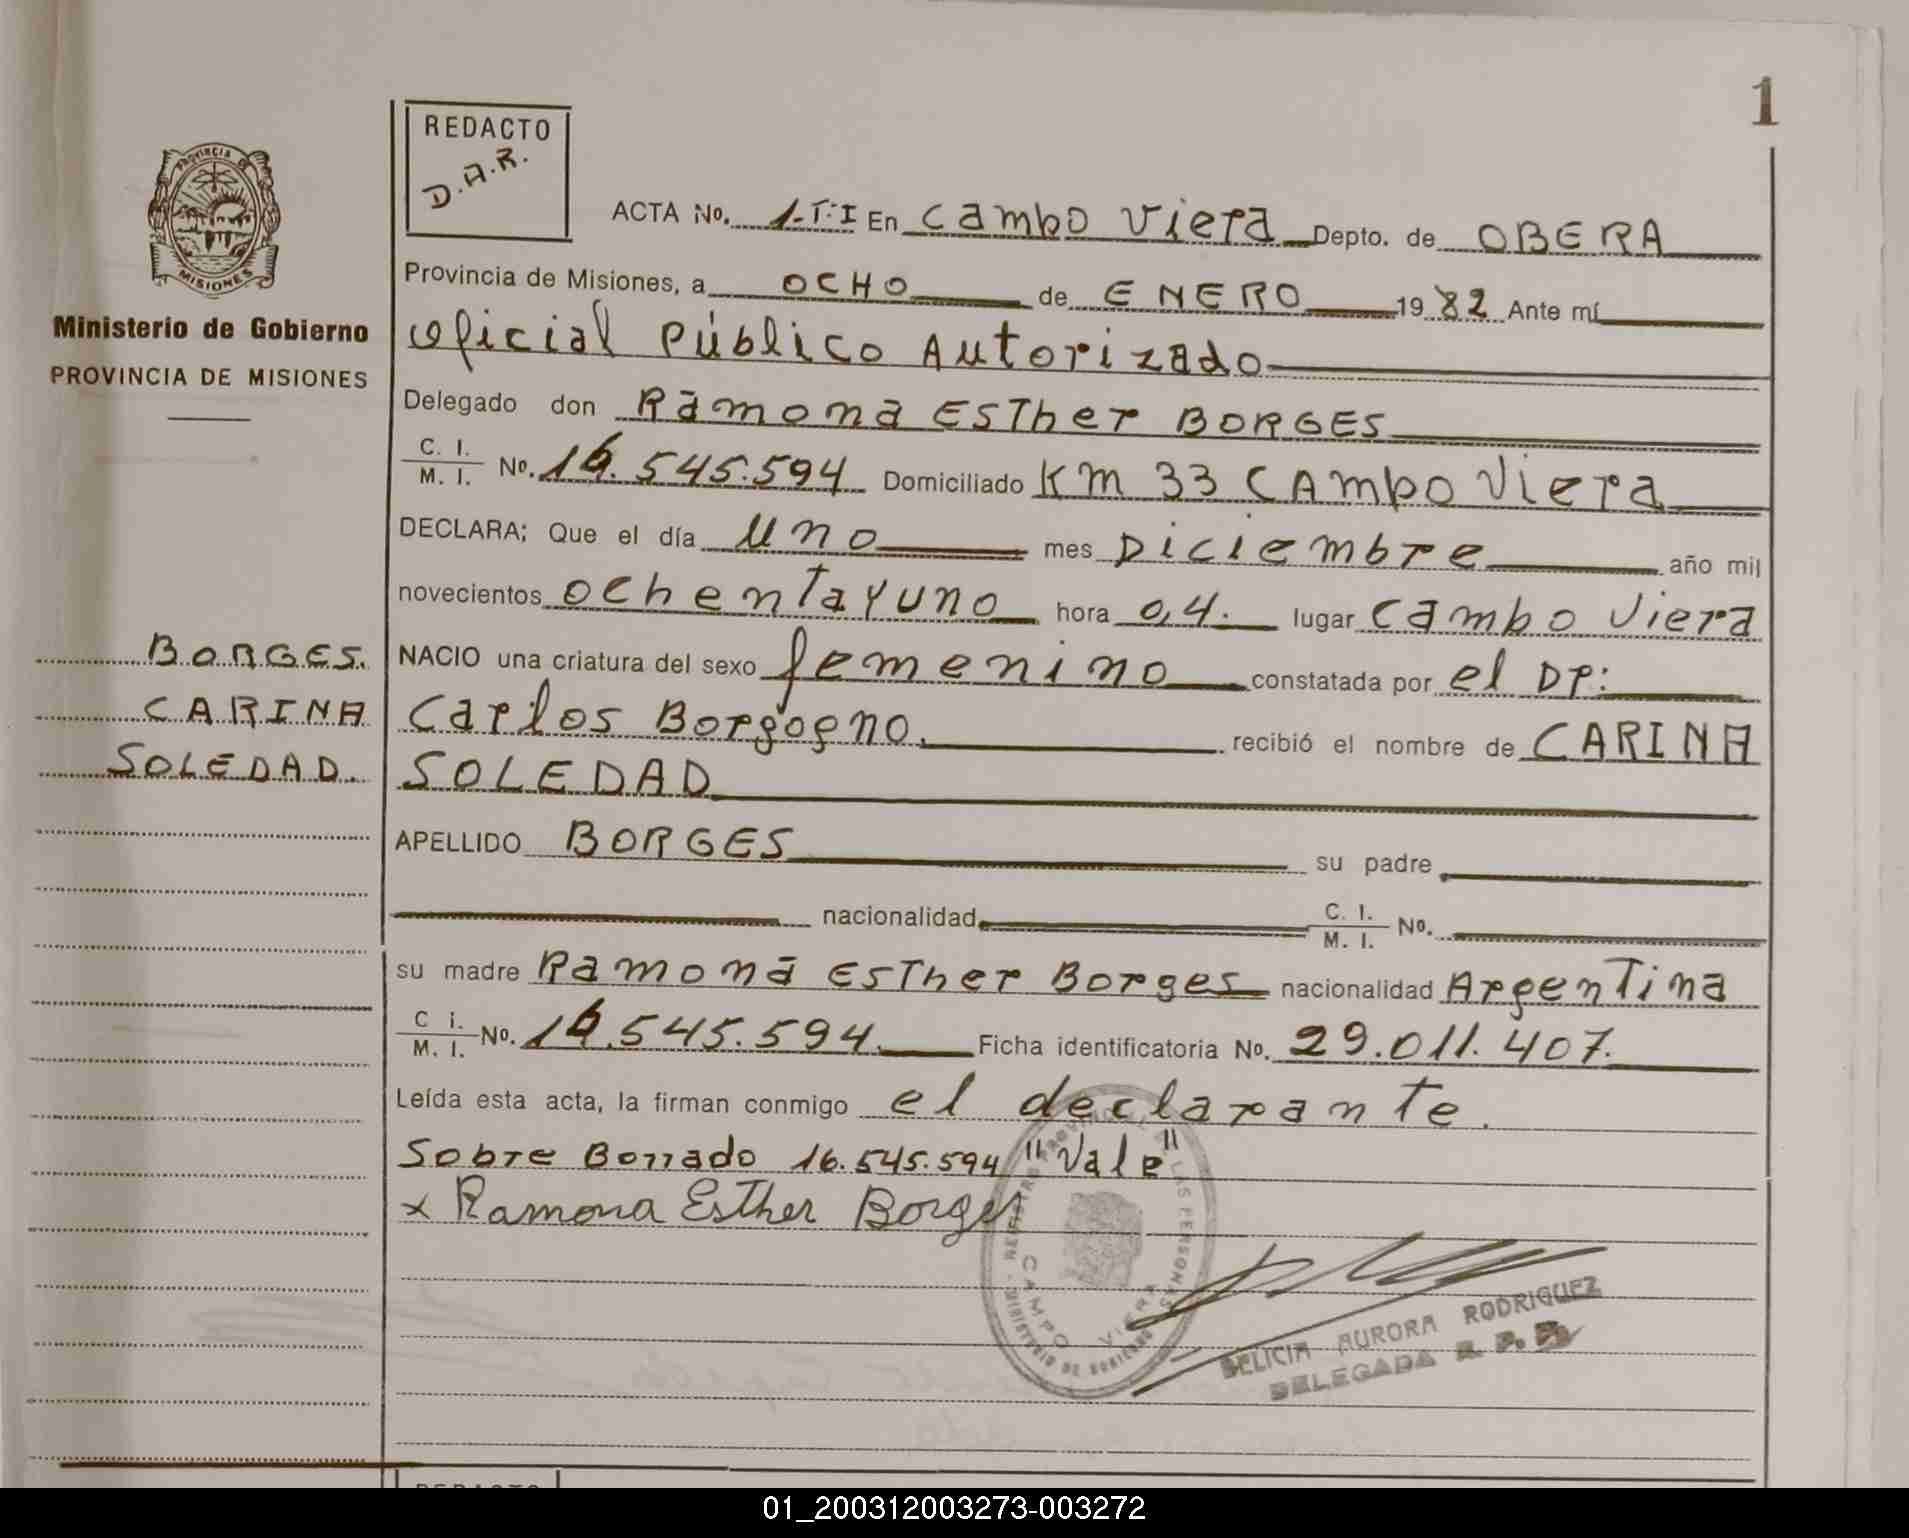 1
REDACTO
D.A.R.
PROVINCIA DE
MISIONES
Ministerio de Gobierno
PROVINCIA DE MISIONES
ACTA No. 1-T:I En Campo Viera Depto. de OBERA
Provincia de Misiones, a OCHO de ENERO 1982 Ante mí
Oficial Público Autorizado
Delegado don Ramona ESTher BORGES
C. I.
M. I. No. 16.545.594 Domiciliado Km 33 CAmpo Viera
DECLARA; Que el día uno mes Diciembre año mil
novecientos ochentayuno hora 0,4. lugar Campo Viera
BORGES.
CARINA
SOLEDAD.
NACIO una criatura del sexo femenino constatada por el Dr:
Carlos Borgogno. recibió el nombre de CARINA
SOLEDAD
APELLIDO BORGES su padre
nacionalidad C. I.
M. I. No.
su madre Ramona ESTher Borges nacionalidad ArgenTina
C i.
M. I. No. 16.545.594. Ficha identificatoria No. 29.011.407.
Leída esta acta, la firman conmigo el declarante.
Sobre Borrado 16.545.594 "Vale"
x Ramona Esther Borges
CAMPO VIERA
DELICIA AURORA RODRIGUEZ
DELEGADA R. P. P.
REDACTO
01_200312003273-003272